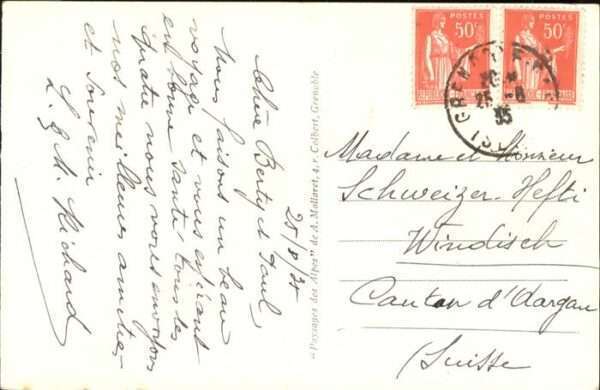 25/8/35
Chère Berty et Paul,
Nous faisons un beau
voyage et vous espérant
en bonne santé tous les
quatre nous vous envoyons
nos meilleures amitiés
et souvenir
L. & M. Richard
"Paysages des Alpes" de A. Mollaret, 4, r. Colbert, Grenoble
POSTES
50c
POSTES
50c
GRENOBLE
25 -8
35
ISÈRE
Madame et Monsieur
Schweizer-Hefti
Windisch
Canton d'Aargau
(Suisse